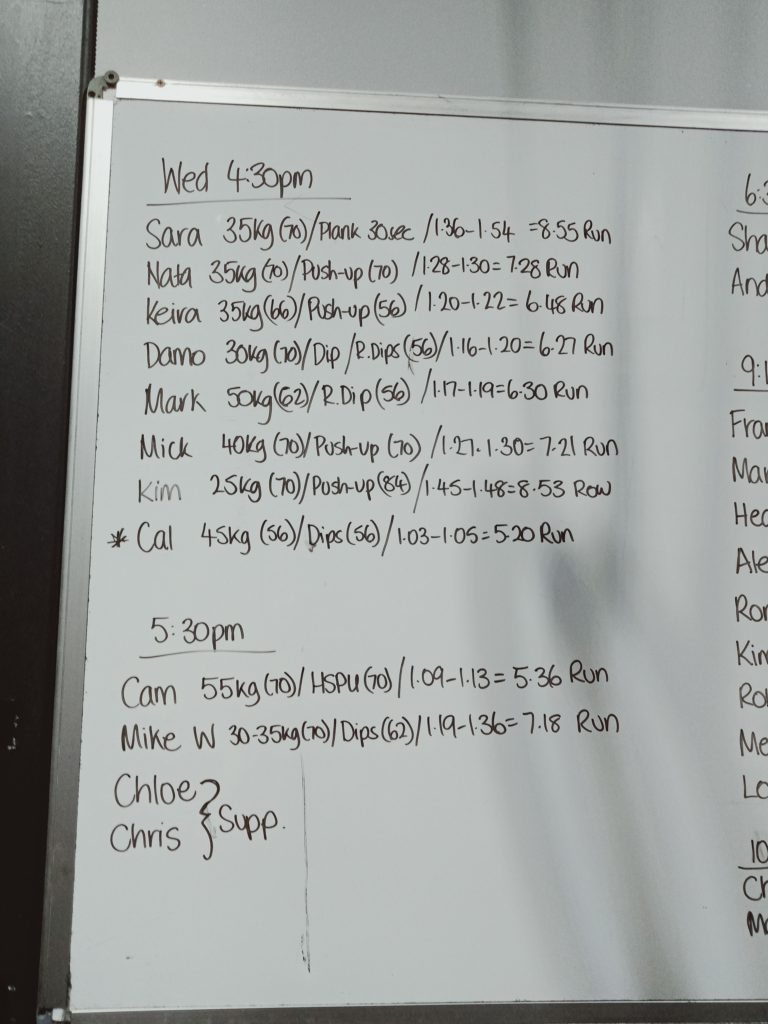 Wed 4:30pm
Sara 35kg (70)/Plank 30sec /1.36-1.54 =8.55 Run
Nata 35kg (70)/Push-up (70) /1.28-1.30= 7.28 Run
Keira 35kg (66)/Push-up (56) /1.20-1.22= 6.48 Run
Damo 30kg (70)/Dip /R.Dips (56)/1.16-1.20=6.27 Run
Mark 50kg (62)/R.Dip (56) /1.17-1.19=6.30 Run
Mick 40kg (70)/Push-up (70) /1.27-1.30= 7.21 Run
Kim 25kg (70)/Push-up (84)/1.45-1.48=8.53 Row
* Cal 45kg (56)/Dips (56)/1.03-1.05=5.20 Run
5:30pm
Cam 55kg (70)/HSPU (70)/1.09-1.13= 5.36 Run
Mike W 30-35kg (70)/Dips (62)/1.19-1.36= 7.18 Run
Chloe
Chris } Supp.
6:3
Sha
And
9:1
Fra
Mar
Hea
Ale
Ron
Kim
Ro
Me
Lo
10
Ch
Ma